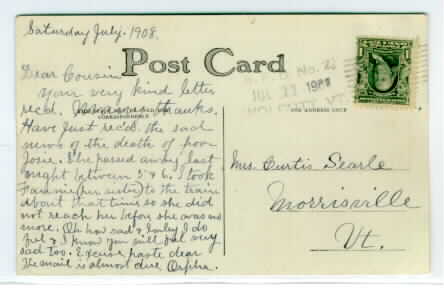 Saturday July. 1908.
Post Card
Dear Cousin
Your very kind letter
rec'd. thanks.
CORRESPONDENCE
Have just rec'd. the sad
news of the death of poor
Josie. She passed away last
night between 5 & 6. I took
Fannie (her sister) to the train
about that time so she did
not reach her before she was no
more. Oh how sad & lonely I do
feel & I know you will feel very
sad too. Excuse haste dear
The mail is almost due. Orpha.
No. 2
JUL
VT.
1
Mrs. Curtis Searle
Morrisville
Vt.